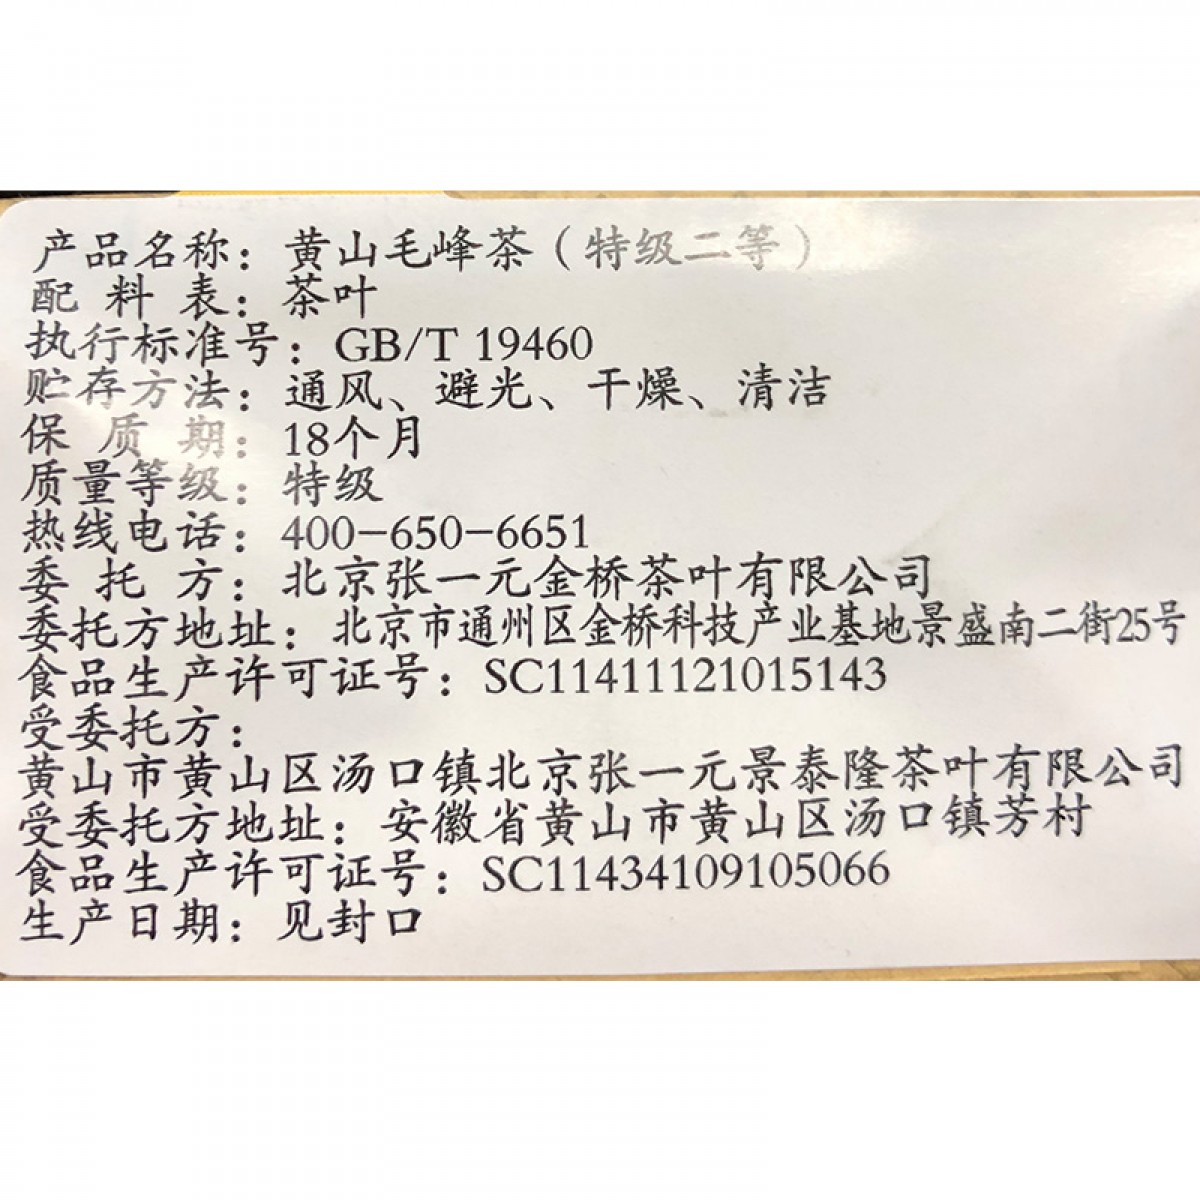 产品名称：黄山毛峰茶（特级二等）
配料表：茶叶
执行标准号：GB/T 19460
贮存方法：通风、避光、干燥、清洁
保质期：18个月
质量等级：特级
热线电话：400-650-6651
委托方：北京张一元金桥茶叶有限公司
委托方地址：北京市通州区金桥科技产业基地景盛南二街25号
食品生产许可证号：SC11411121015143
受委托方：
黄山市黄山区汤口镇北京张一元景泰隆茶叶有限公司
受委托方地址：安徽省黄山市黄山区汤口镇芳村
食品生产许可证号：SC11434109105066
生产日期：见封口